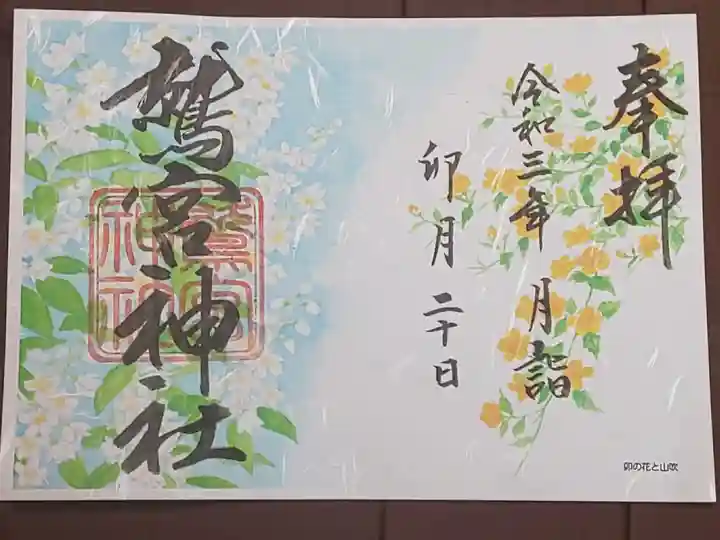 奉拝
令和三年 月詣
卯月 二十日
鷲宮神社
鷲宮
神社
卯の花と山吹